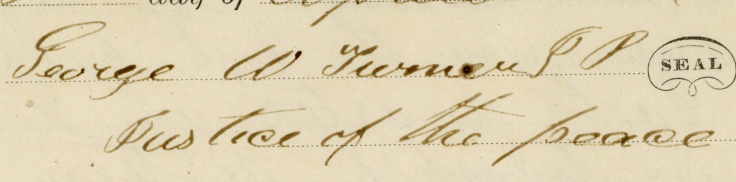 day of
George W Turner J P SEAL
Justice of the peace